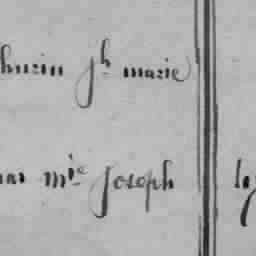 hurin jh marie
mie joseph